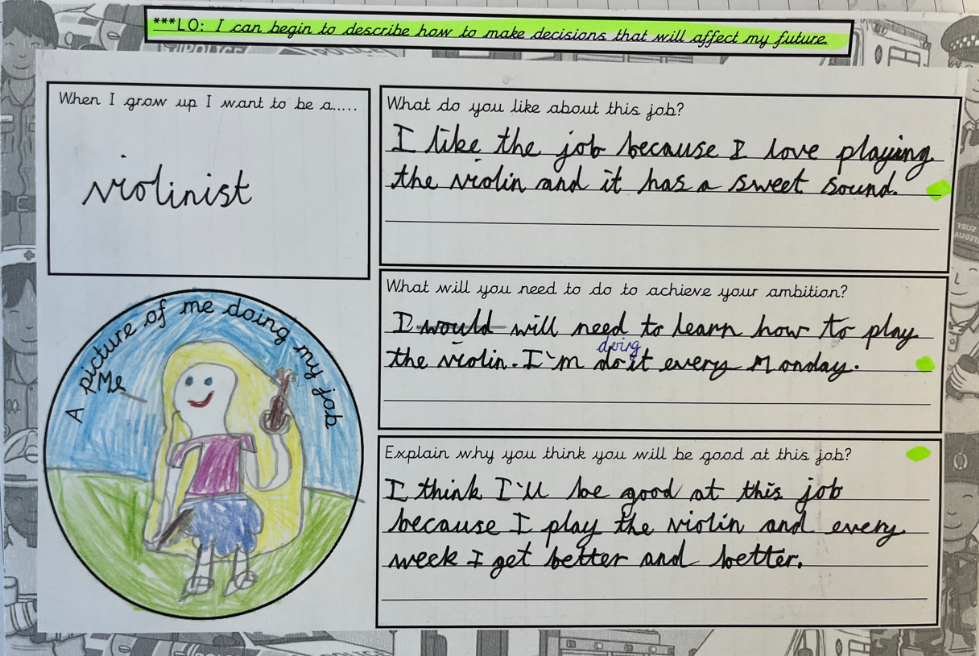 ***LO: I can begin to describe how to make decisions that will affect my future.
When I grow up I want to be a.....
violinist
What do you like about this job?
I like the job because I love playing
the violin and it has a sweet sound.
What will you need to do to achieve your ambition?
I would will need to learn how to play
doing
the violin. I'm do it every Monday.
A picture of me doing my job
Me
Explain why you think you will be good at this job?
I think I'll be good at this job
because I play the violin and every
week I get better and better.
POLICE